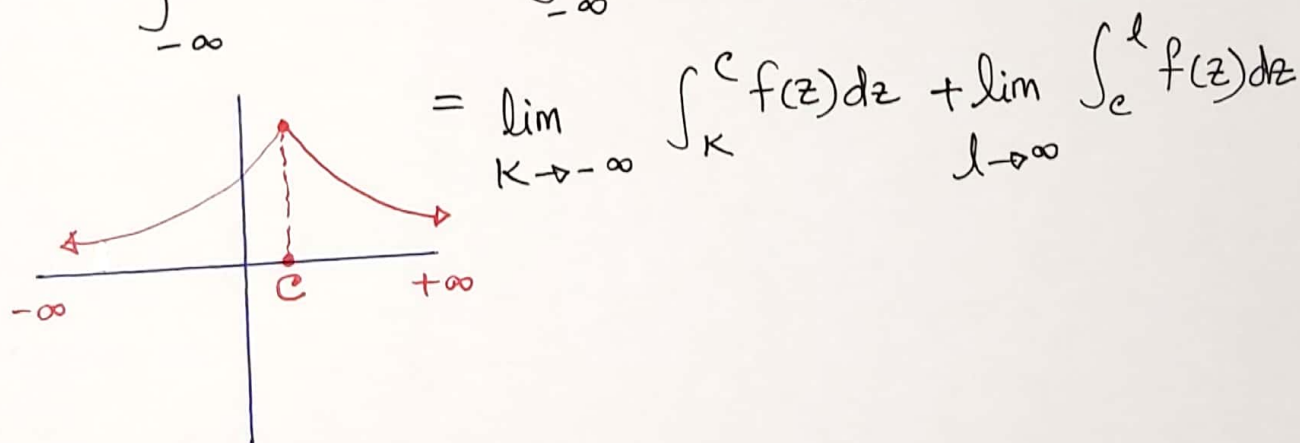 ∫_{-∞} -∞
= lim_{K→-∞} ∫_K^c f(z)dz + lim_{l→∞} ∫_c^l f(z)dz
-∞ C +∞